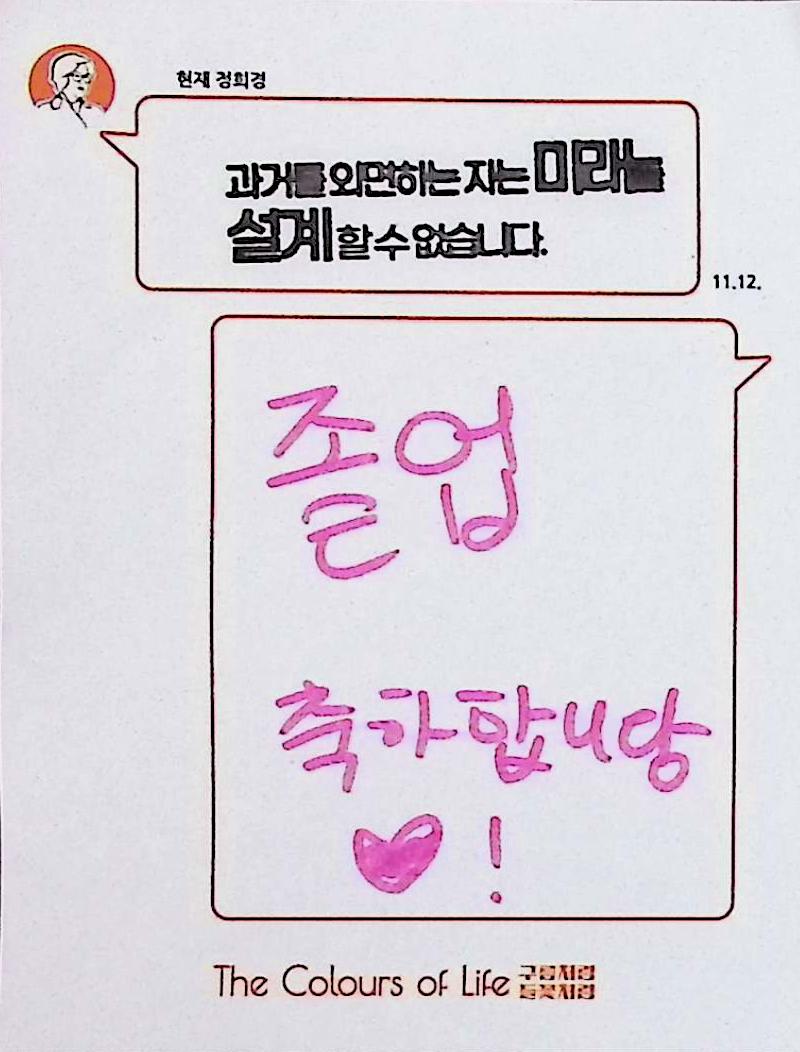 현재 정희경
과거를 외면하는 자는 미래를
설계 할 수 없습니다.
11.12.
졸업
축하합니당
♥ !
The Colours of Life 구름처럼
들꽃처럼